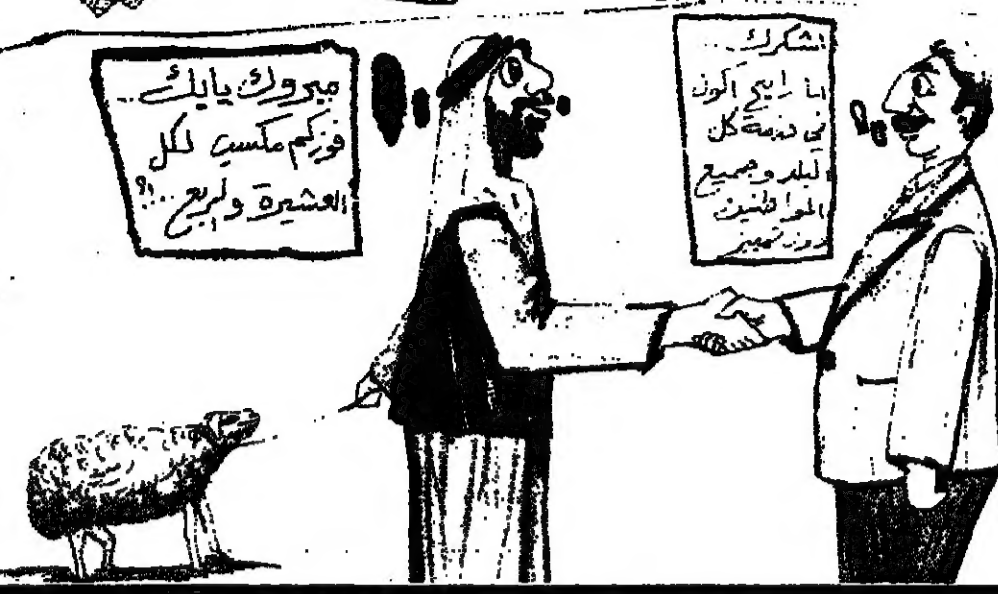 مبروك يابك ..
فوزكم مكسب لكل
العشيرة والربع ...؟!
اشكرك ...
انا رايح اكون
في خدمة كل
البلد وجميع
المواطنين
دون تمييز